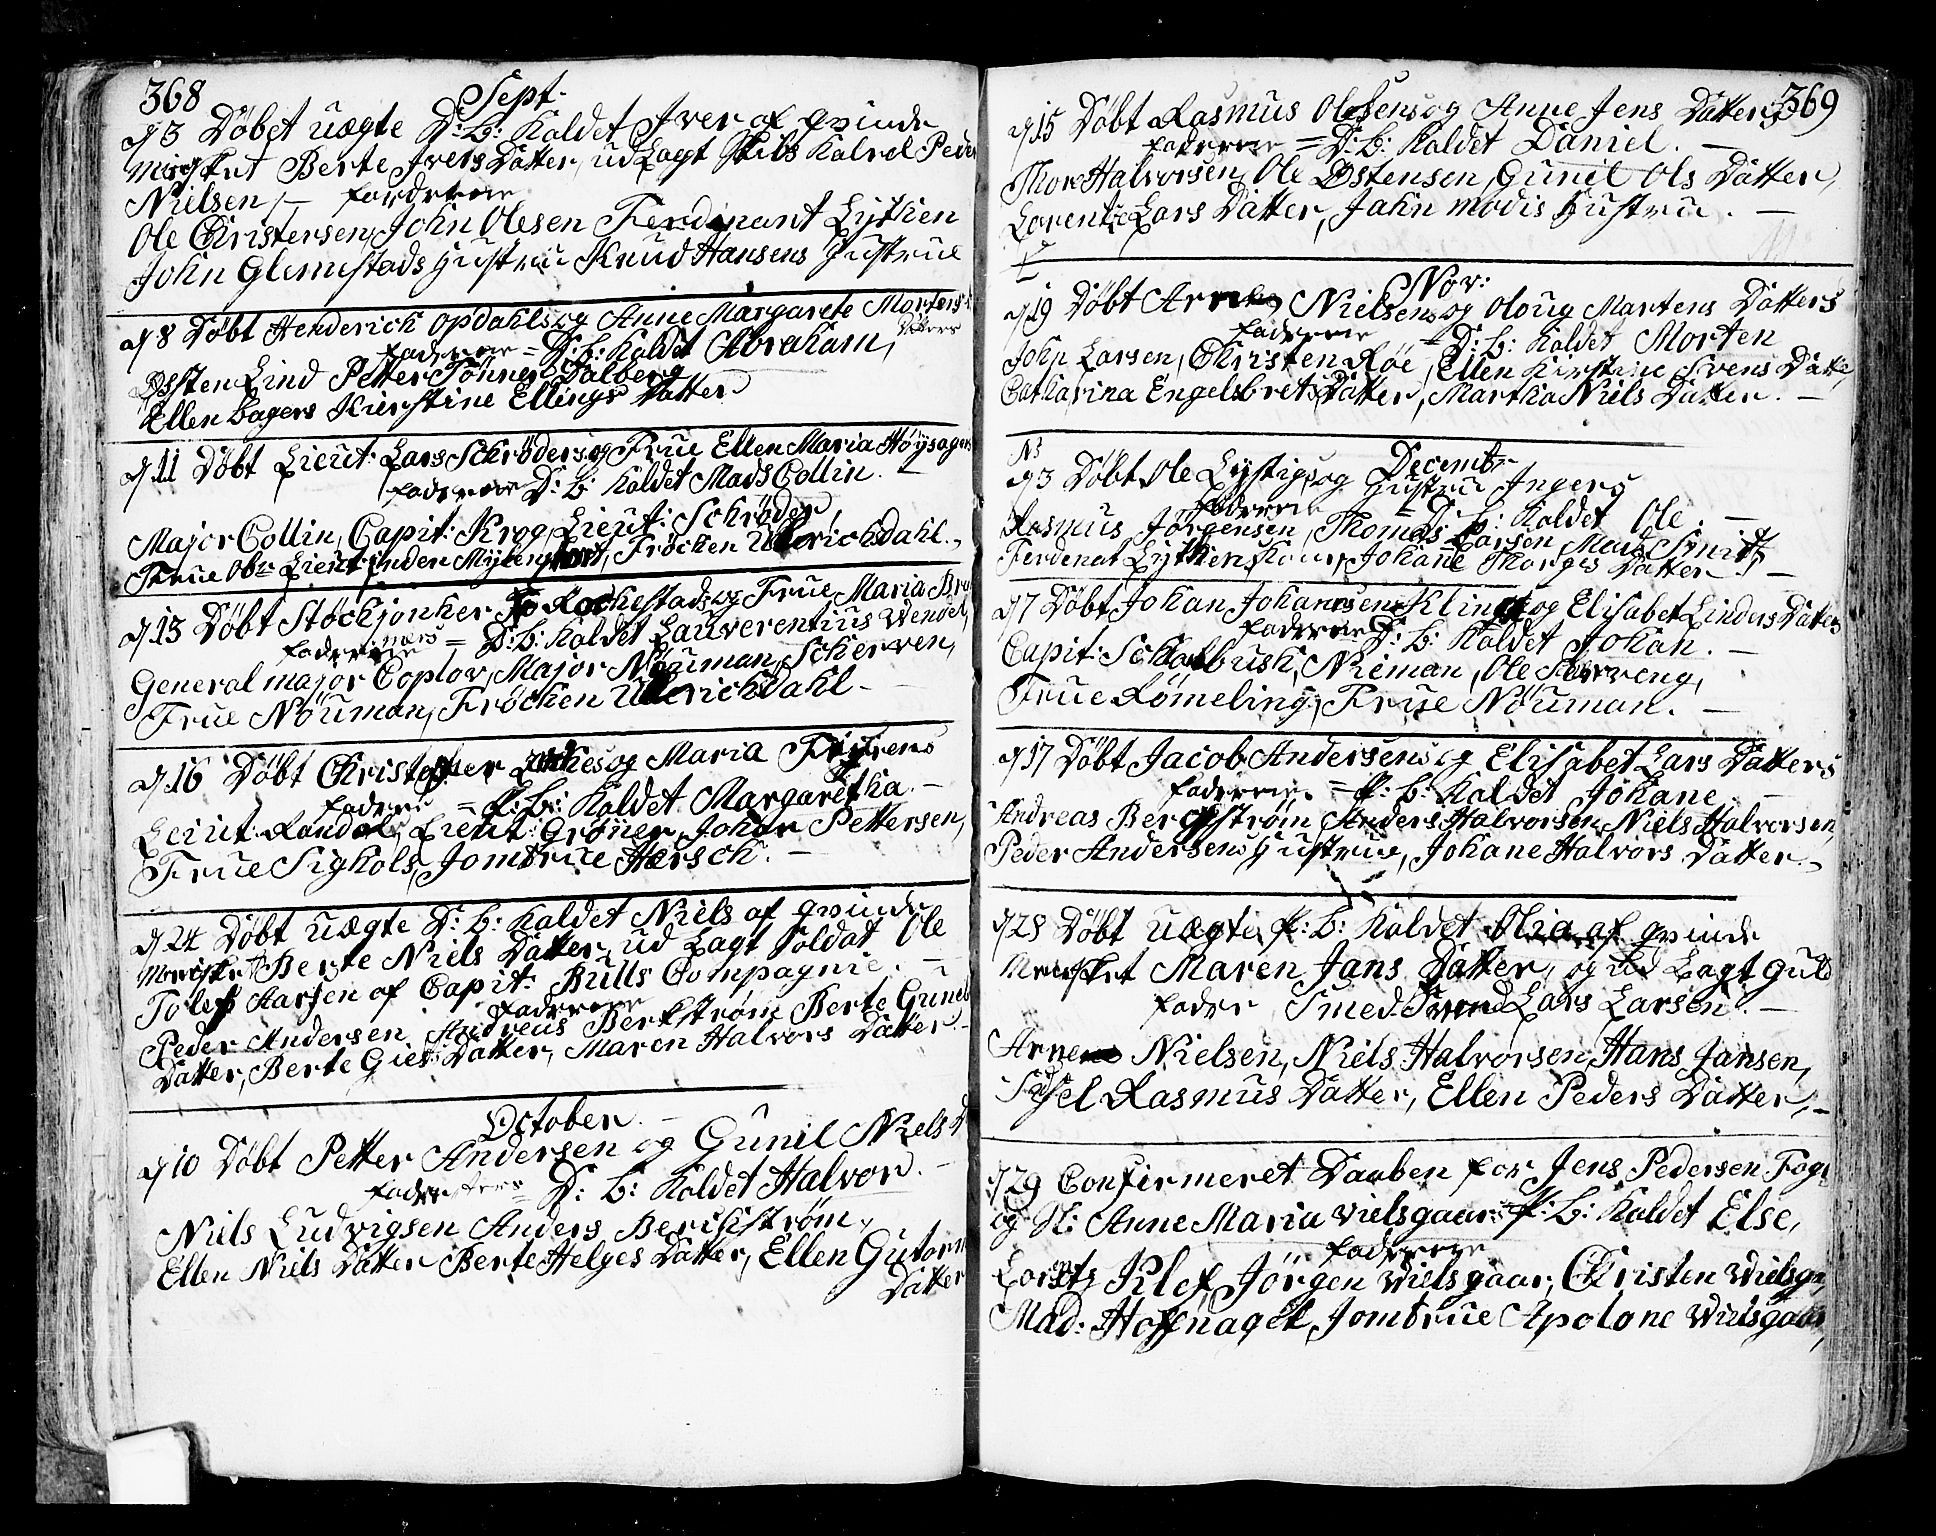 368
Sept.
d 3 Döbet uægte D: b: Kaldet Iver af qvinde
Mensket Berte Ivers Datter, ud Lagt Skibs Karel Peder
Nielsen, — fadrene
Ole Christersen, John Olesen Ferdinant Lythien
John Glemestads Hustru Knud Hansens Hustrue
d 8 Döbt Henderick Opdahls og Anne Margarete Mortens
Datters
fadrene = D: b: Kaldet Abraham,
Østen Lind Petter Tönner Dalberg
Ellen Bagers Kierstine Ellings Datter
d 11 Döbt Lieut: Lars Schröders og Frue Ellen Maria Höysagers
fadrene D: b: Kaldet Mads Collin. —
Major Collin, Capit: Krog, Lieut: Schröder,
Frue Obr Lieut: Fröchen Ulerichdahl. —
d 13 Döbt Stöckjonker og Frue Maria
fadrene = D: b: Kaldet Lauverentius Wendel,
General major Coplov, Major Nöuman, Scherven,
Frue Nöuman, Fröchen Ulerichdahl —
d 16 Döbt Christopher og Maria
fadrene = P: b: Kaldet Margaretha. —
Leiut Randol, Lieut: Gröner, Johan Pettersen,
Frue Sighols, Jomfrue Hersch. —
d 24 Döbt uægte D: b: Kaldet Niels af qvinde
Mensket Berte Niels Datter, ud Lagt Soldat Ole
Tolefs Aarsen af Capit: Bülls Compagnie. —
fadrene
Peder Andersen, Andreas Berkström Berte Gunels
Datter, Berte Gies Datter, Maren Halvors Datter —
October. —
d 10 Döbt Petter Andersen og Gunil Niels D
fadrene = D: b: Kaldet Halvor. —
Niels Ludvigsen Anders Berchström,
Ellen Niels Datter Berte Helges Datter, Ellen Gutorms
Datter
369
d 15 Döbt Rasmus Olesens og Anne Jens Datters
fadrene = D: b: Kaldet Daniel. —
Thore Halvorsen, Ole Østensen, Gunil Ols Datter,
Lorentze Lars Datter, Jahn modis Hustru. —
Nov:
d 19 Döbt Arne Nielsens og Oloug Martens Datters
fadrene = D: b: Kaldet Morten
John Larsen, Christen Röe, Ellen Kirstine Svens Datte,
Catharina Engelsbrets Datter, Martha Niels Datter. —
Decembr
d 3 Döbt Ole Lystigs og Hustru Ingers
fadrene = D: b: Kaldet Ole. —
Rasmus Jörgensen, Thomas Larsen Mads Smith
Ferdenat Lythien Kone, Johane Thorges Datter —
d 7 Döbt Johan Johannsens Kling og Elisabet Linders Datters
fadrene D: b: Kaldet Johan. —
Capit: Schalbusk, Nieman, Ole
Frue Römeling, Frue Nöuman. —
d 17 Döbt Jacob Andersens og Elisabet Lars Datters
fadrene = P: b: Kaldet Johane —
Andreas Bergström Anders Halvorsen, Niels Halvorsen,
Peder Andersens Hustrue, Johane Halvors Datter. —
d 28 Döbt Uægte P: b: Kaldet Olia af qvinde
Mensket Maren Jans Datter, og Ud Lagt Guld
fader Smed Svend Lars Larsen. —
Arne Nielsen, Niels Halvorsen, Hans Jansen,
Sidsel Rasmus Datter, Ellen Peders Datter, —
d 29 Confirmeret Daaben for Jens Pedersen Fog
og H: Anne Maria Wielsgaar P: b: Kaldet Else,
fadrene
Lorentz Pilef, Jörgen Wielsgaar, Christen Wielsga
Mad: Hoffnagel, Jomfrue Apolone Wielsgaar,